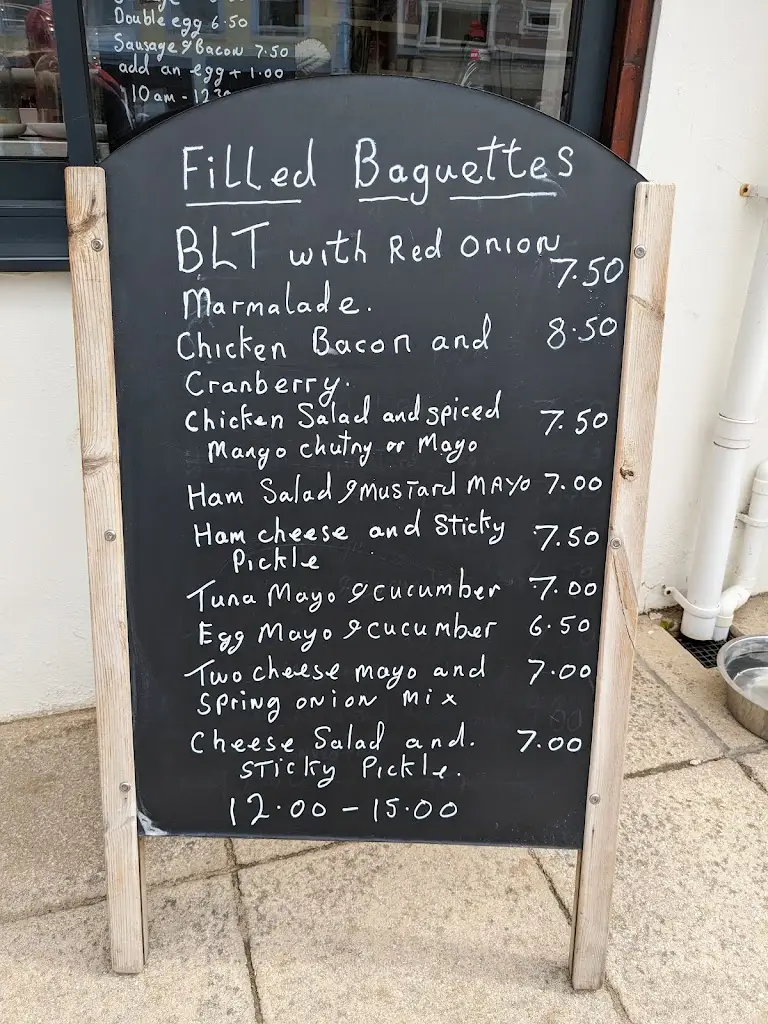 Double egg 6.50
Sausage & Bacon 7.50
add an egg + 1.00
10am - 12
Filled Baguettes
BLT with Red onion
7.50
Marmalade.
Chicken Bacon and 8.50
Cranberry.
Chicken Salad and spiced 7.50
Mango chutny or Mayo
Ham Salad & MUSTARD MAYO 7.00
Ham cheese and Sticky 7.50
Pickle
Tuna Mayo & cucumber 7.00
Egg Mayo & cucumber 6.50
Two cheese mayo and 7.00
Spring onion mix
Cheese Salad and. 7.00
Sticky Pickle.
12.00 - 15.00